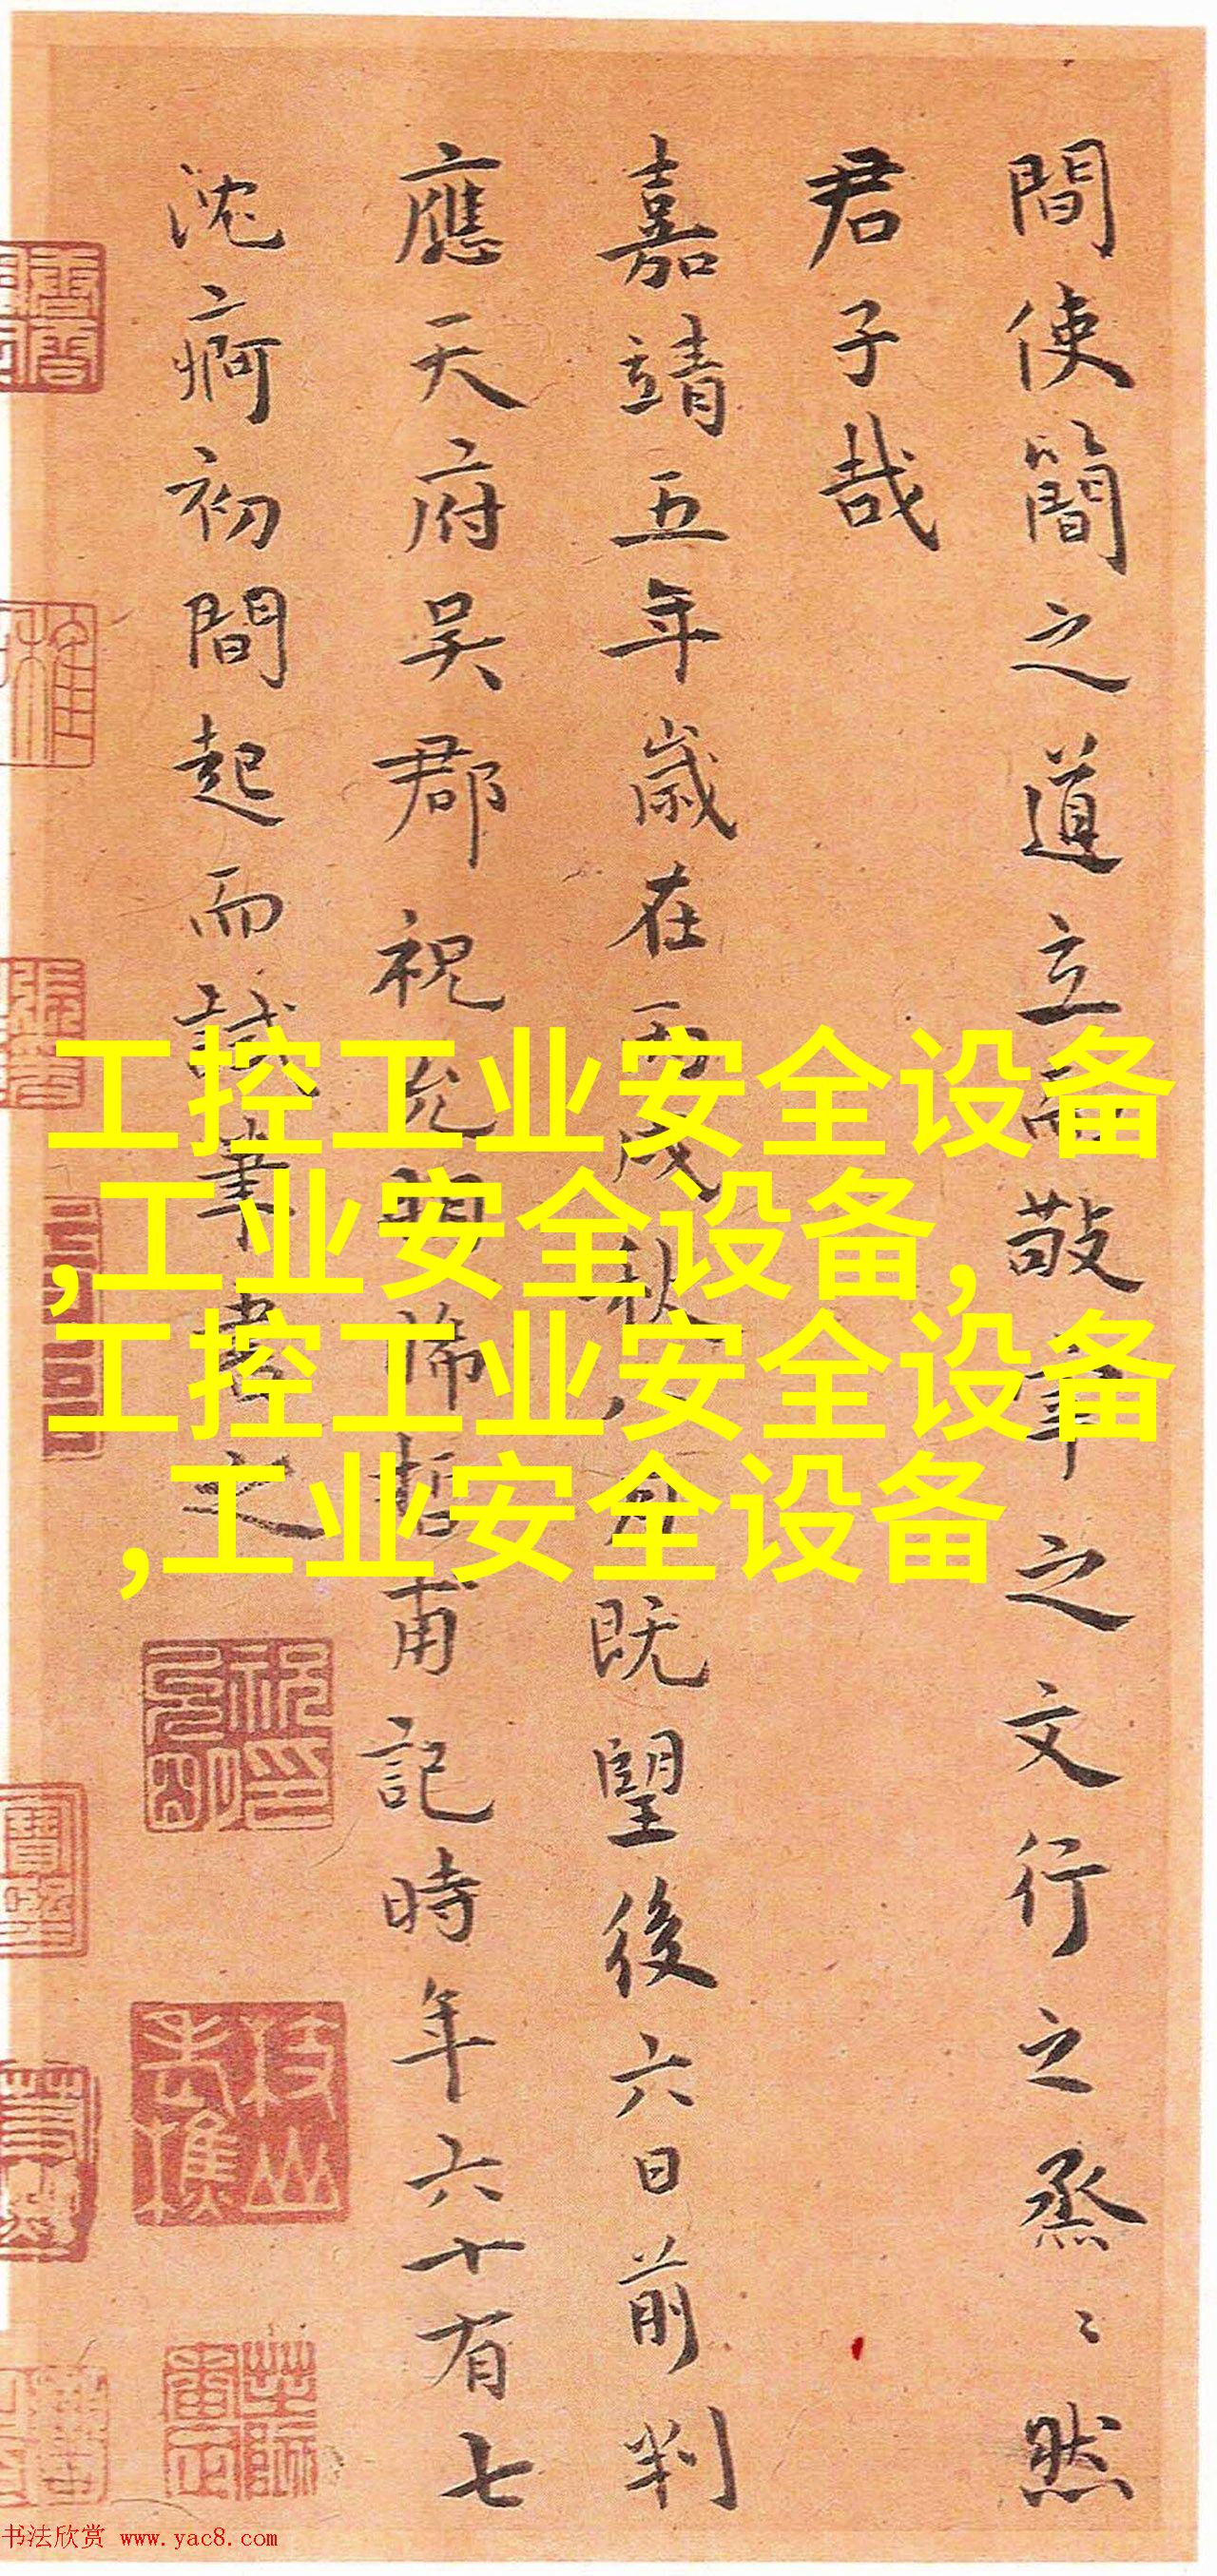 間使簡之道立而敬事之文行之烝〻然
君子哉
嘉靖五年歲在丙戌秋八月既望後六日前判
應天府吴郡祝允明希哲甫記時年六十有七
沈痾初間起而試筆書之
工控工业安全设备
,工业安全设备,
工控工业安全设备
,工业安全设备
枝山老樵
书法欣赏 www.yac8.com